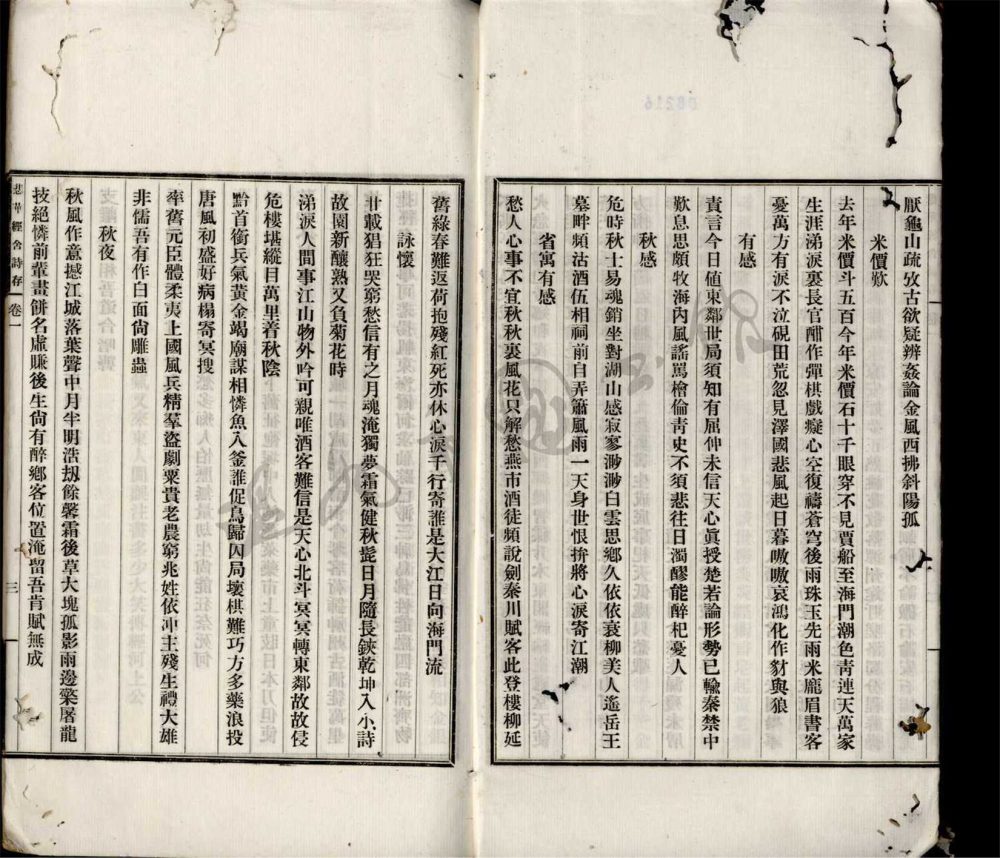 厭龜山疏攷古欲疑辨姦論金風西拂斜陽孤
米價歎
去年米價斗五百今年米價石十千眼穿不見賈船至海門潮色青連天萬家
生涯涕淚裏長官酣作彈棋戲癡心空復禱蒼穹後雨珠玉先雨米龐眉書客
憂萬方有淚不泣硯田荒忽見澤國悲風起日暮嗷嗷哀鴻化作豺與狼
有感
責言今日値東鄰世局須知有屈伸未信天心眞授楚若論形勢已輸秦禁中
歎息思頗牧海內風謠罵檜倫靑史不須悲往日濁醪能醉杞憂人
秋感
危時秋士易魂銷坐對湖山感寂寥渺渺白雲思鄉久依依衰柳美人遙岳王
墓畔頻沽酒伍相祠前自弄簫風雨一天身世恨拚將心淚寄江潮
省寓有感
愁人心事不宜秋秋裏風花只解愁燕市酒徒頻說劍秦川賦客此登樓柳延
舊綠春難返荷抱殘紅死亦休心淚千行寄誰是大江日向海門流
詠懷
卄載猖狂哭窮愁信有之月魂淹獨夢霜氣健秋髭日月隨長鋏乾坤入小詩
故園新釀熟又負菊花時
涕淚人間事江山物外吟可親唯酒客難信是天心北斗冥冥轉東鄰故故侵
危樓堪縱目萬里着秋陰
黔首銜兵氣黃金竭廟謀相憐魚入釜誰促鳥歸囚局壞棋難巧方多藥浪投
唐風初盛好病榻寄冥搜
率舊元臣體柔夷上國風兵精羣盜劇粟貴老農窮兆姓依冲主殘生禮大雄
非儒吾有作白面尙雕蟲
秋夜
秋風作意撼江城落葉聲中月半明浩刼餘馨霜後草大塊孤影雨邊檠屠龍
技絕憐前輩畫餠名虛賺後生尙有醉鄉客位置淹留吾肯賦無成
悲華經舍詩存
卷一
三